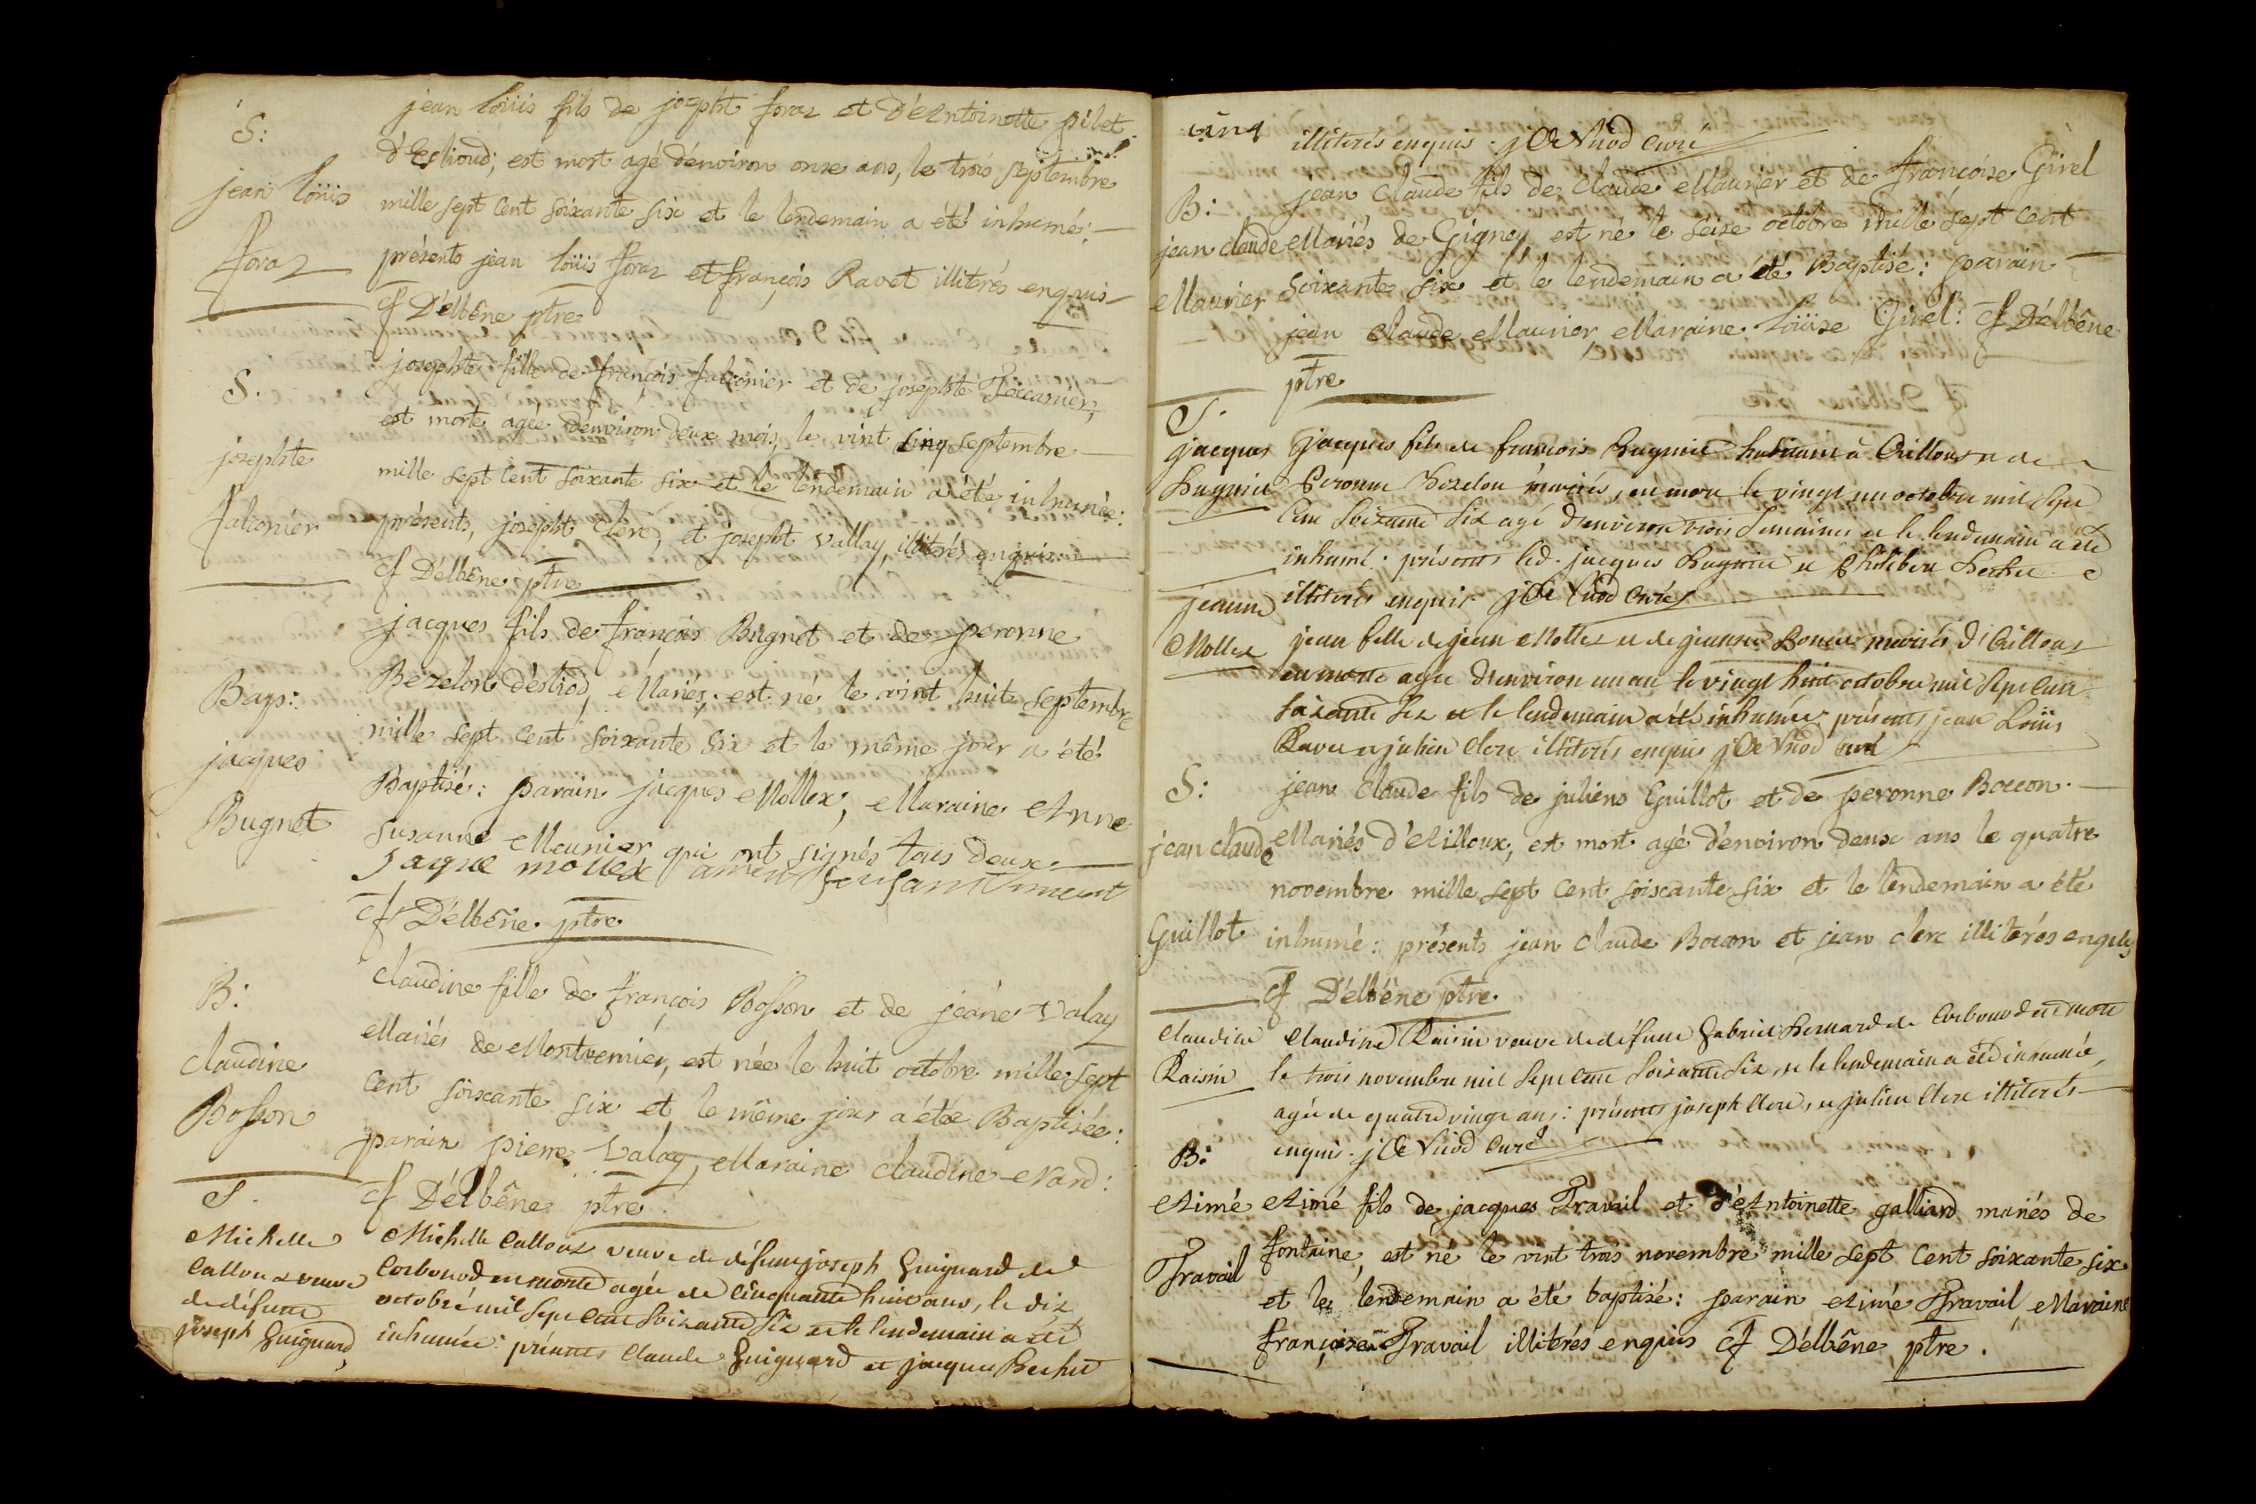 S:
jean loüis
foraz
jean loüis fils de josepht foraz et d'Antoinette pilet
d'Eslioud; est mort agé d'environ onze ans, le trois septembre
mille sept cent soixante six et le lendemain a été inhumé;
présents jean loüis foraz et françois Ravet illiterés enquis
f D'élbêne ptre
S.
josephte
falconier
josephte fille de françois falconier et de josephte
est morte agée d'environ deux mois, le vint cinq septembre
mille sept cent soixante six et le lendemain a été inhumée:
présents, josepht Clerc, et josepht vallay, illiterés enquis
f D'élbêne ptre
Bap:
jacques
Bugnet
jacques fils de françois Bugnet et de peronne
Bezelon d'esliod, Mariés; est né le vint huit septembre
mille sept cent soixante six et le même jour a été
Baptisé: parain jacques Mollex, Maraine Anne
susanne Meunier qui ont signés tous deux
jaque mollex
f D'élbêne ptre
B:
claudine
Bosson
claudine fille de françois Bosson et de jeane valay
Mariés de Montvernier, est née le huit octobre mille sept
cent soixante six et le même jour a été Baptisée:
parain pierre valay, Maraine claudine Nard:
f D'élbêne ptre
S.
Michelle
Calloux veuve
de défunt
joseph Guignard
Michelle Calloux veuve de défunt joseph Guignard de
Corbonod est morte agée de cinquante huit ans, le dix
octobre mil sept cent soixante six et le lendemain a été
inhumée: présents Claude Guignard et jacques Bechet
illiterés enquis. j De Vuod Curé
B:
jean claude
Maurier
jean claude fils de claude Maurier et de françoise Girel
Mariés de Gigney, est né le seize octobre mille sept cent
soixante six et le lendemain a été Baptisé: parain
jean claude Maurier, Maraine loüise Girel: f D'élbêne
ptre
S.
jacques
Bugniet
jacques fils de françois Bugniet habitant à Cilloux et de
Peronne Bezelon mariés, est mort le vingt un octobre mil sept
cent soixante six agé d'environ trois semaines et le lendemain a été
inhumé: présents led. jacques Bugniet et Philibert Bechet
illiterés enquis j De Vuod Curé
jeanne
Mollex
jeane fille de jean Mollex et de jeanne mariés d'Cilloux
est morte agée d'environ un an le vingt huit octobre mil sept cent
soixante six et le lendemain a été inhumée: présents jean Loüis
Ravet et julien Clerc illiterés enquis j De Vuod curé
S:
jean claude
Guillot
jean claude fils de juliens Guillot et de peronne Bocon
Mariés d'Eilloux, est mort agé d'environ deux ans le quatre
novembre mille sept cent soixante six et le lendemain a été
inhumé: présents jean claude Bocon et jean clerc illiterés enquis
f D'élbêne ptre
Claudine
Raisin
Claudine Raisin veuve de défunt Gabriel Bernard de Corbonod est morte
le trois novembre mil sept cent soixante six, et le lendemain a été inhumée,
agée de quatre vingt ans: présents joseph Clerc, et julien Clerc illiterés
enquis. j De Vuod Curé
B:
Aimé
Travail
Aimé fils de jacques Travail et d'Antoinette galliard mariés de
fontaine, est né le vint trois novembre mille sept cent soixante six
et le lendemain a été baptisé: parain Aimé Travail, Maraine
françoise Travail illiterés enquis f D'élbêne ptre.